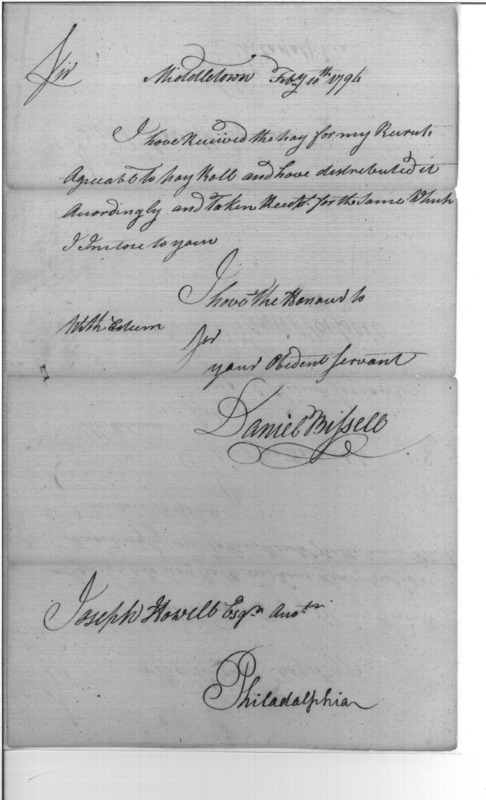 Sir Middletown Feby 10th 1794
I have Received the pay for my Recruts
Agreeable to pay Roll and have distributed it
Acordingly and Taken Recets. for the same Which
I Inclose to your
I have the Honour to
With Esteem Sir
your Obedent Servant
Daniel Bissell
Joseph Howell Esqr
Philadalphia